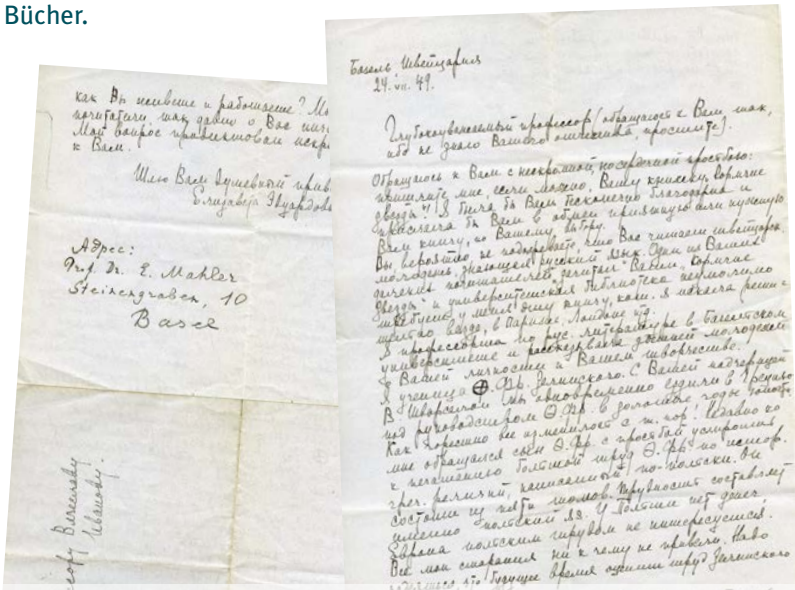 Bücher.
как Вы живете и работаете?
почитатели, так давно о Вас
Мой вопрос продиктован
к Вам.
Шлю Вам душевный
Елизавета Эдуардовна
Адрес:
Prof. Dr. E. Mahler
Steinengraben, 10
Basel
Вячеславу
Иванову!
Базель Швейцария
24. VII. 49.
Глубокоуважаемый профессор (обращаюсь к Вам так,
ибо не знаю Вашего отчества, простите).
Обращаюсь к Вам с нескромной, но сердечной просьбою:
пришлите мне, если можно, Вашу книжку "Кормчие
звезды"! Я была бы Вам бесконечно благодарна и
прислала бы Вам в обмен или нужную
Вам книгу, по Вашему выбору.
Вы вероятно, не подозреваете, что Вас читает швейцарск.
молодежь, знающая русский язык. Один из Ваших
почитателей "Кормчие
звезды" и университетская библиотека неумолимо
требует у меня эту книгу, кот. я искала
тщетно везде, в Париже, Лондоне и т.д.
Я профессорша по рус. литературе в Базельском
университете и рассказывала здешней молодежи
о Вашей личности и Вашем творчестве.
Я ученица Ф. Фр. Зелинского. С Вашей падчерицей
В. Шварсалон мы одновременно ездили в Грецию
под руководством Ф. Фр. в далекие годы
Как все изменилось с тех пор! Недавно ко
мне обращался сын Ф. Фр. с просьбой устроить
к печатанию большой труд Ф. Фр. по истор.
греч. религий, написанный по-польски. Он
состоит из пяти томов. Трудность составляет
именно польский яз. У Польши нет денег,
Европа польским трудом не интересуется.
Все мои старания ни к чему не привели. Надо
что будущее время оценит труд Зелинского